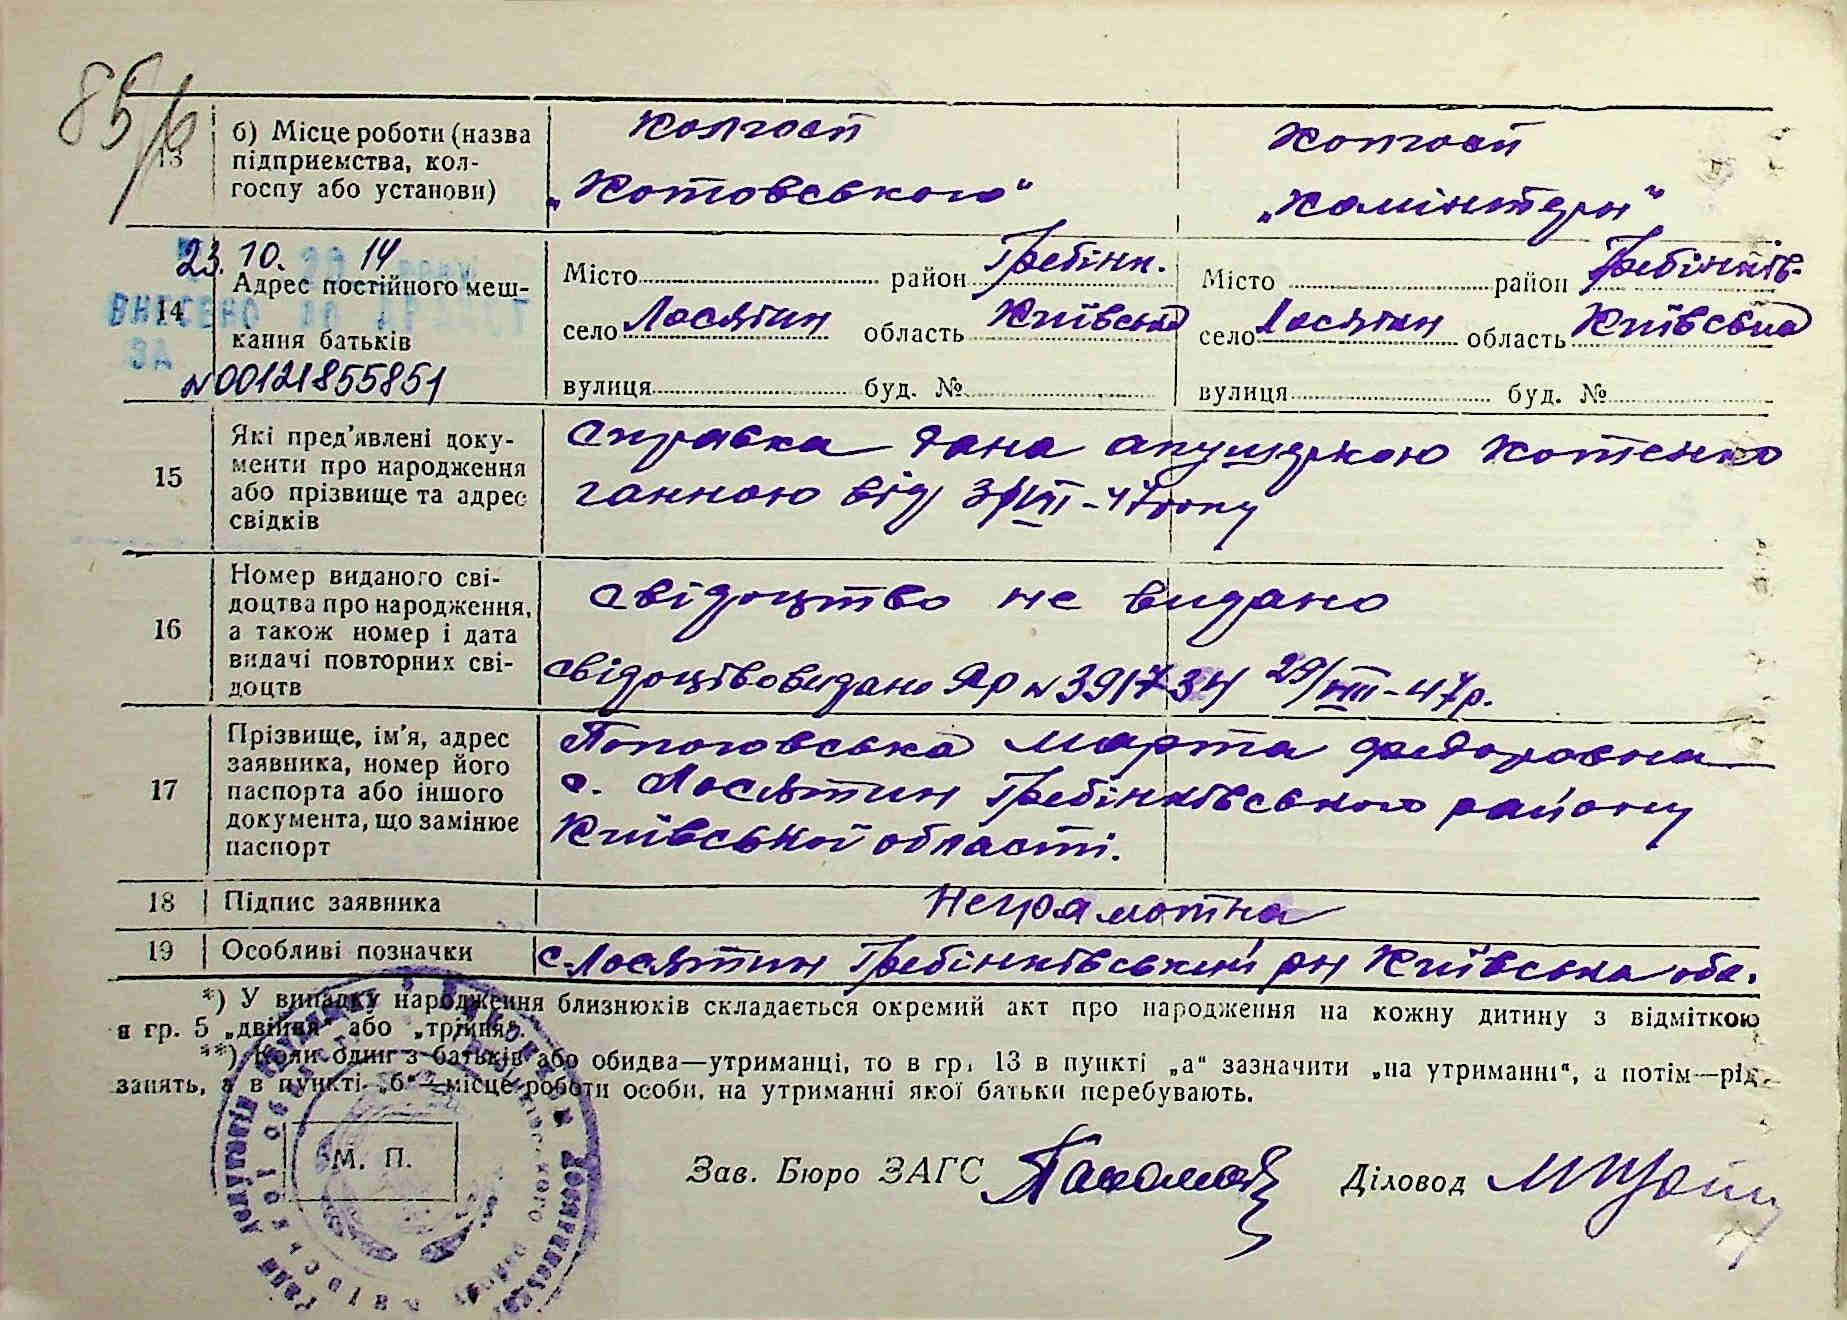 85
13
б) Місце роботи (назва
підприємства, кол-
госпу або установи)
колгосп
„Котовського“
колгосп
„Комінтерн“
23. 10. 14
14
Адрес постійного меш-
кання батьків
ВНЕСЕНО
ЗА
N00121855851
Місто район Гребінк.
село Лосятин область Київська
вулиця буд. №
Місто район Гребінків-
село Лосятин область Київська
вулиця буд. №
15
Які пред'явлені доку-
менти про народження
або прізвище та адрес
свідків
справка дана акушеркою Котенко
ганною від 3/VIII-47 року
16
Номер виданого сві-
доцтва про народження,
а також номер і дата
видачі повторних сві-
доцтв
свідоцтво не видано
свідоцтво видано Яр N 391734 29/VIII-47р.
17
Прізвище, ім'я, адрес
заявника, номер його
паспорта або іншого
документа, що замінює
паспорт
Марта Федоровна
с. Лосятин Гребінківського району
Київської області.
18
Підпис заявника
Неграмотна
19
Особливі позначки
с. Лосятин Гребінківський рн Київська обл.
*) У випадку народження близнюків складається окремий акт про народження на кожну дитину з відміткою
в гр. 5 „двійня“ або „трійня“.
**) Коли один з батьків або обидва—утриманці, то в гр. 13 в пункті „а“ зазначити „на утриманні“, а потім—рід
занять, а в пункті „б“—місце роботи особи, на утриманні якої батьки перебувають.
М. П.
Зав. Бюро ЗАГС
Діловод